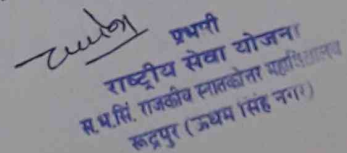 प्रभारी
राष्ट्रीय सेवा योजना
स.भ.सिं. राजकीय स्नातकोत्तर महाविद्यालय
रूद्रपुर (ऊधम सिंह नगर)